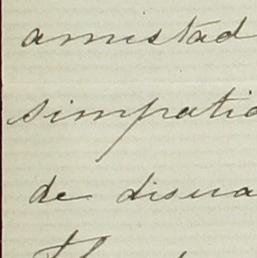 amistad
simpatic
de disua